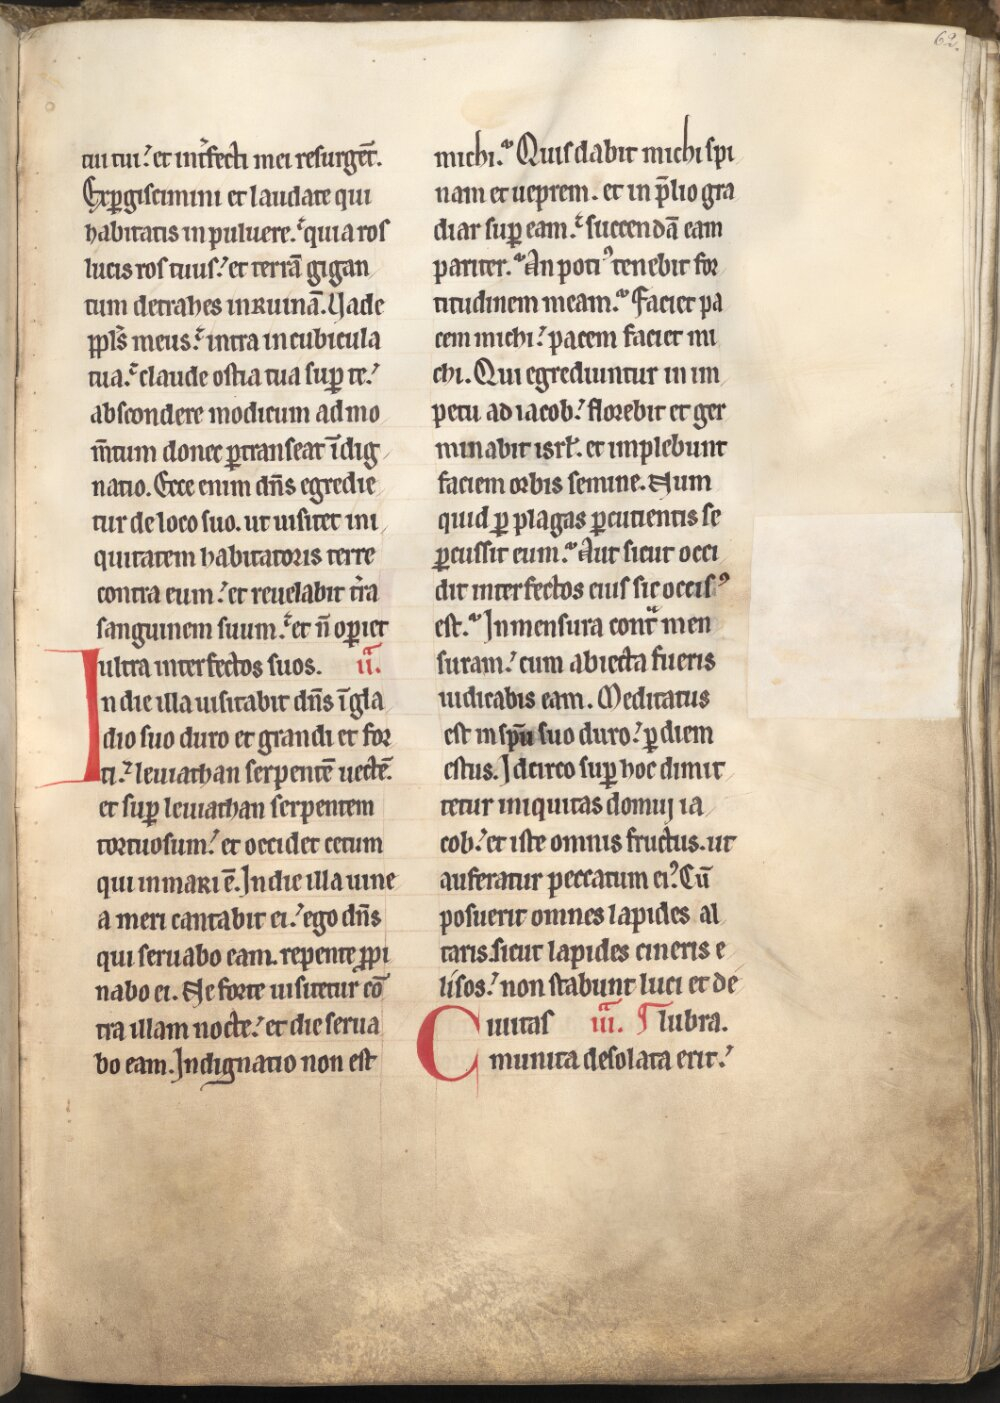 62.
tui tui. et int̄fecti mei resurgēt.
Exp̱giscimini et laudate qui
habitatis in puluere. quia ros
lucis ros tuus. et terrā gigan
tum detrahes in ruinā. Uade
pp̄ls meus. intra in cubicula
tua. claude ostia tua sup̱ te.
abscondere modicum ad mo
m̄tum donec p̱transeat īdig
natio. Ecce enim dn̄s egredie
tur de loco suo. ut uisitet ini
quitatem habitatoris terre
contra eum. et reuelabit t̄ra
sanguinem suum. et n̄ op̱iet
ultra interfectos suos. ii.ͣ
In die illa uisitabit dn̄s ī gla
dio suo duro et grandi et for
ti. leuiathan serpentē uectē.
et sup̱ leuiathan serpentem
tortuosum. et occidet cetum
qui in mari ē. In die illa uine
a meri cantabit ei. ego dn̄s
qui seruabo eam. repente ꝓpi
nabo ei. Ne forte uisitetur cō
tra illam nocte. et die serua
bo eam. Indignatio non est
michi. Quis dabit michi spi
nam et ueprem. et in p̄lio gra
diar sup̱ eam. succendā eam
pariter. An poti᾽ tenebit for
titudinem meam. Faciet pa
cem michi. pacem faciet mi
chi. Qui egrediuntur in im
petu ad iacob. florebit et ger
minabit isrl̄. et implebunt
faciem orbis semine. Num
quid p̱ plagas p̱cutientis se
p̱cussit eum. Aut sicut occi
dit interfectos eius sic occis᾽
est. In mensura contͣ men
suram. cum abiecta fueris
iudicabis eam. Meditatus
est in sp̄u suo duro. p̱ diem
estus. Idcirco sup̱ hoc dimit
tetur iniquitas domuj ia
cob. et iste omnis fructus. ut
auferatur peccatum ei᾽. Cū
posuerit omnes lapides al
taris. sicut lapides cineris e
lisos. non stabunt luci et de
Ciuitas iii.ͣ ¶ lubra.
munita desolata erit.